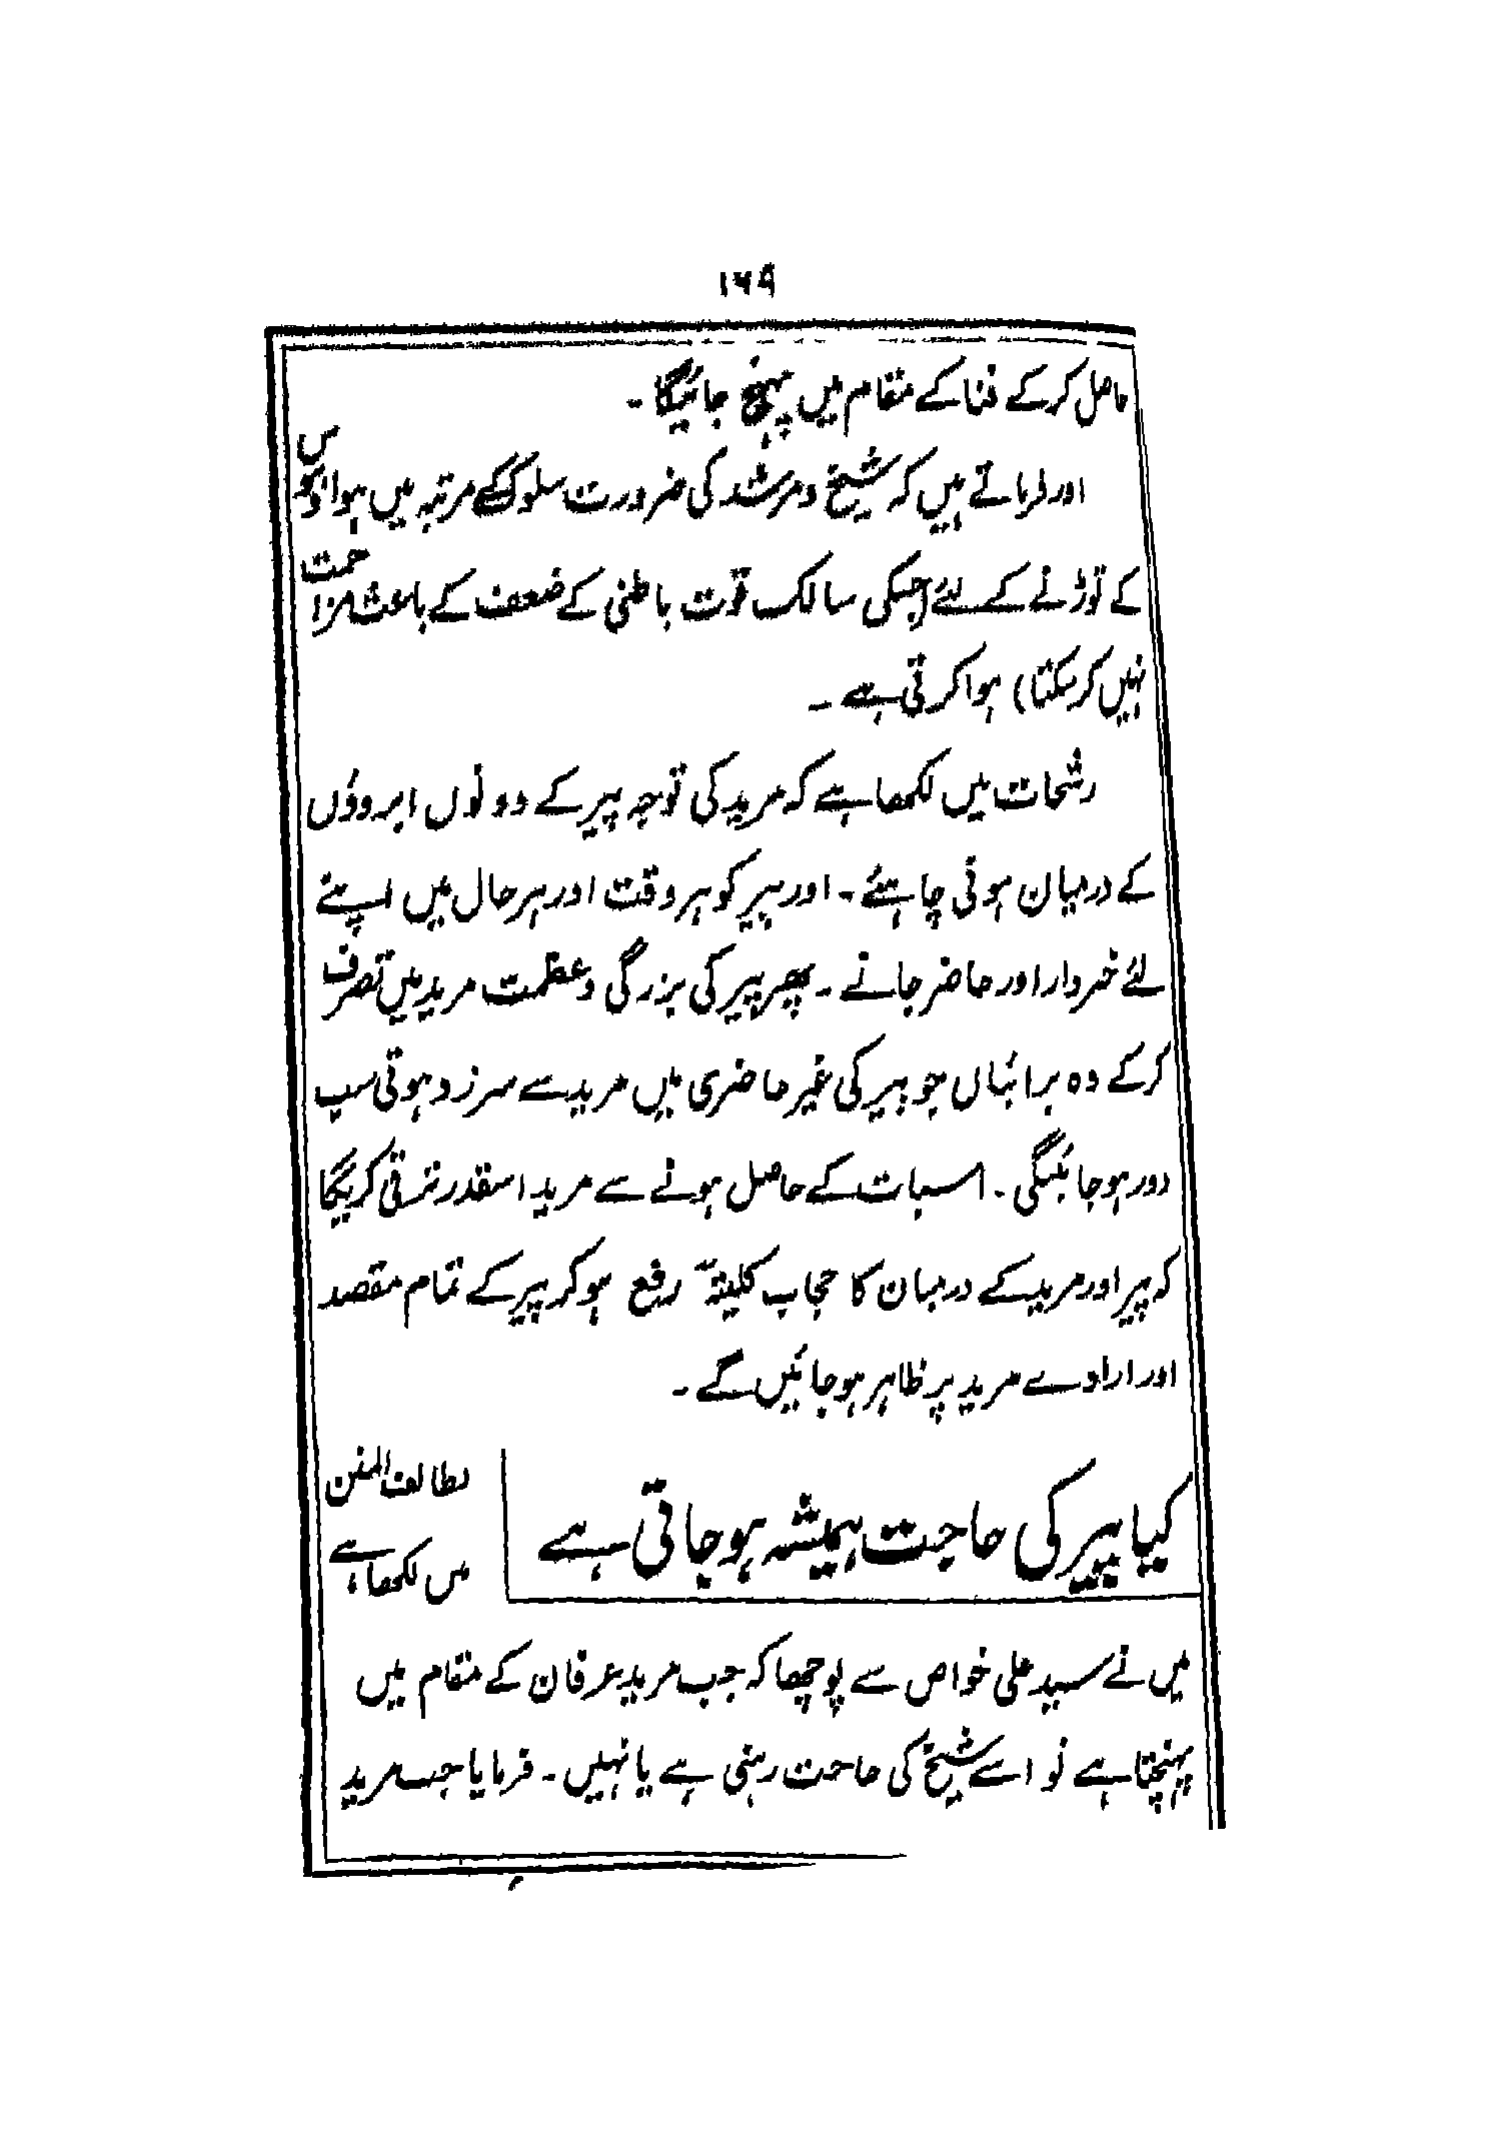 ۱۶۹
حاصل کرکے فنا کے مقام میں پہنچ جائیگا۔
اور فرماتے ہیں کہ شیخ و مرشد کی ضرورت سلوک کے مرتبہ میں ہوا و ہوس
کے توڑنے کے لئے (جسکی سالک قوت باطنی کے ضعف کے باعث مزاحمت
نہیں کرسکتا) ہوا کرتی ہے۔
رشحات میں لکھا ہے کہ مرید کی توجہ پیر کے دونوں ابرووں
کے درمیان ہونی چاہئے۔ اور پیر کو ہر وقت اور ہر حال میں اپنے
لئے خبردار اور حاضر جانے۔ پھر پیر کی بزرگی و عظمت مرید میں تصرف
کرکے وہ برائیاں جو پیر کی غیر حاضری میں مرید سے سرزد ہوتی سب
دور ہوجائینگی۔ اسبات کے حاصل ہونے سے مرید اسقدر ترقی کریگا
کہ پیر اور مرید کے درمیان کا حجاب کلیتہً رفع ہوکر پیر کے تمام مقصد
اور ارادے مرید پر ظاہر ہوجائیں گے۔
کیا پیر کی حاجت ہمیشہ ہوجاتی ہے
لطائف المنن
میں لکھا ہے
میں نے سید علی خواص سے پوچھا کہ جب مرید عرفان کے مقام میں
پہنچتا ہے تو اسے شیخ کی حاجت رہتی ہے یا نہیں۔ فرمایا جب مرید